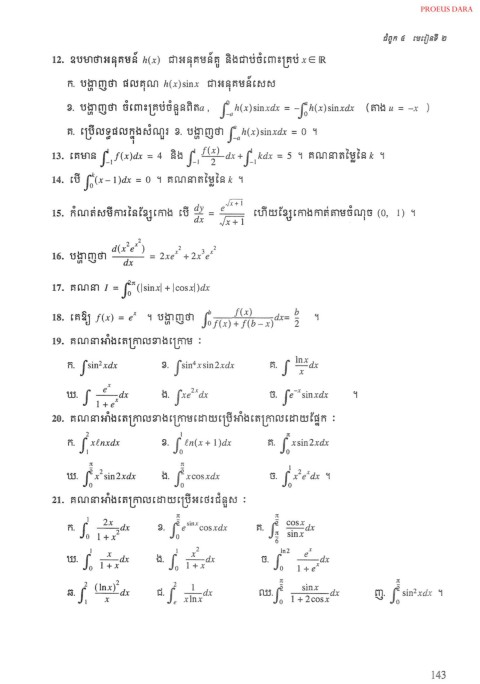 PROEUS DARA
ជំពូក ៥ មេរៀនទី ២
12. ឧបមាថាអនុគមន៍ h(x) ជាអនុគមន៍គូ និងជាប់ចំពោះគ្រប់ x ∈ ℝ
ក. បង្ហាញថា ផលគុណ h(x)sinx ជាអនុគមន៍សេស
ខ. បង្ហាញថា ចំពោះគ្រប់ចំនួនពិត a , ∫_{-a}^{0} h(x)sinxdx = -∫_{0}^{a} h(x)sinxdx (តាង u = -x )
គ. ប្រើលទ្ធផលក្នុងសំណួរ ខ. បង្ហាញថា ∫_{-a}^{a} h(x)sinxdx = 0 ។
13. គេមាន ∫_{-1}^{4} f(x)dx = 4 និង ∫_{-1}^{4} f(x)/2 dx + ∫_{-1}^{4} kdx = 5 ។ គណនាតម្លៃនៃ k ។
14. បើ ∫_{0}^{k} (x-1)dx = 0 ។ គណនាតម្លៃនៃ k ។
15. កំណត់សមីការនៃខ្សែកោង បើ dy/dx = e^{√(x+1)}/√(x+1) ហើយខ្សែកោងកាត់តាមចំណុច (0, 1) ។
16. បង្ហាញថា d(x²e^{x²})/dx = 2xe^{x²} + 2x³e^{x²}
17. គណនា I = ∫_{0}^{2π} (|sinx| + |cosx|)dx
18. គេឱ្យ f(x) = e^x ។ បង្ហាញថា ∫_{0}^{b} f(x)/(f(x) + f(b-x)) dx = b/2 ។
19. គណនាអាំងតេក្រាលខាងក្រោម :
ក. ∫sin²xdx ខ. ∫sin⁴xsin2xdx គ. ∫ lnx/x dx
ឃ. ∫ e^x/(1+e^x) dx ង. ∫xe^{2x}dx ច. ∫e^{-x}sinxdx ។
20. គណនាអាំងតេក្រាលខាងក្រោមដោយប្រើអាំងតេក្រាលដោយផ្នែក :
ក. ∫_{1}^{2} xℓnxdx ខ. ∫_{0}^{1} ℓn(x+1)dx គ. ∫_{0}^{π} xsin2xdx
ឃ. ∫_{0}^{π/2} x²sin2xdx ង. ∫_{0}^{π/2} xcosxdx ច. ∫_{0}^{1} x²e^x dx ។
21. គណនាអាំងតេក្រាលដោយប្រើអថេរជំនួស :
ក. ∫_{0}^{1} 2x/(1+x²) dx ខ. ∫_{0}^{π/2} e^{sinx}cosxdx គ. ∫_{π/6}^{π/2} cosx/sinx dx
ឃ. ∫_{0}^{1} x/(1+x) dx ង. ∫_{0}^{1} x²/(1+x) dx ច. ∫_{0}^{ln2} e^x/(1+e^x) dx
ឆ. ∫_{1}^{2} (lnx)²/x dx ជ. ∫_{e}^{2} 1/(xlnx) dx ឈ. ∫_{0}^{π/2} sinx/(1+2cosx) dx ញ. ∫_{0}^{π/2} sin²xdx ។
143